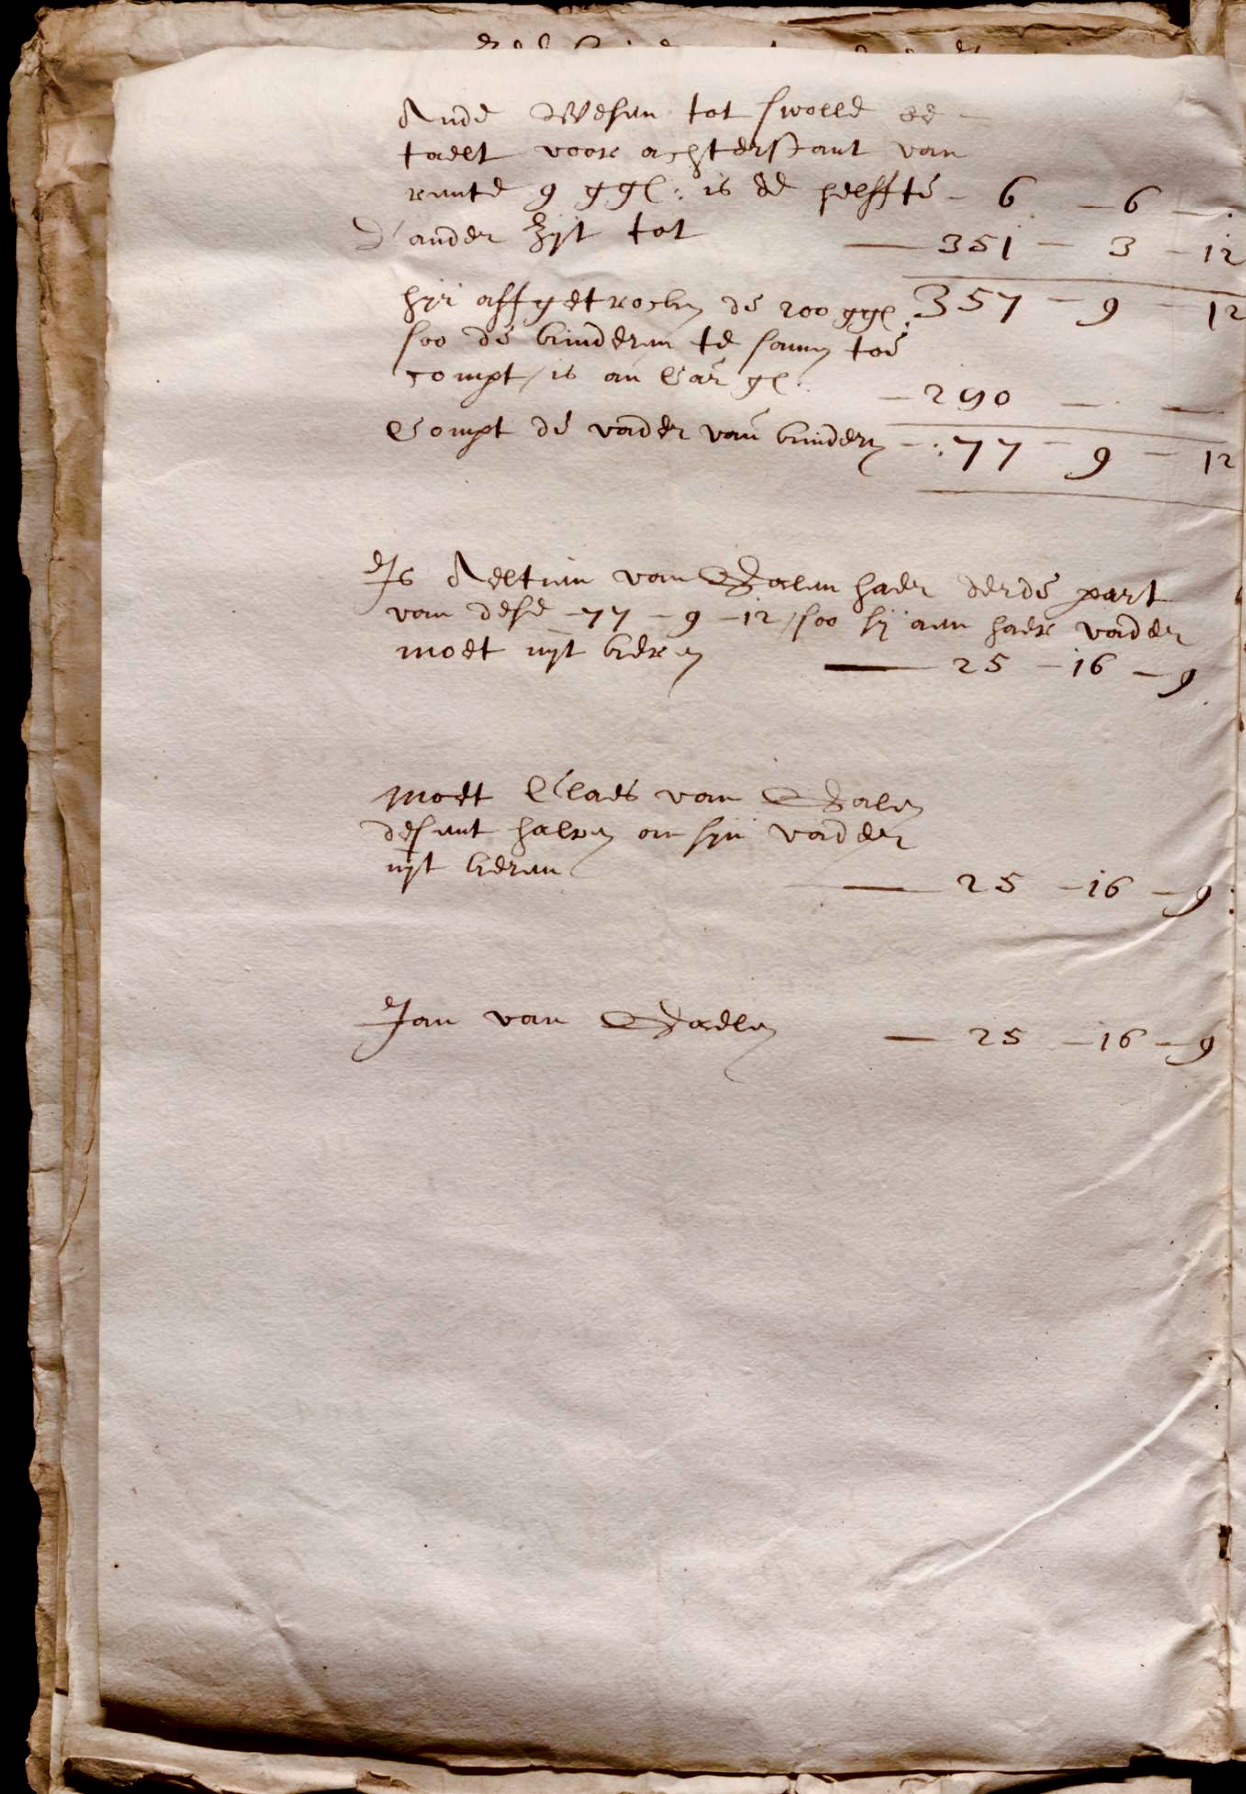 Ande Wesen tot Swolle be-
taelt voor achterstant van
rente 9 ggl: is de helffte - 6 - 6 - .
D'ander zijt tot - 351 - 3 - 12
hijr affgetrocken de 200 ggl. 357 - 9 - 12
soo de kinderen te samen toe
compt / is an Car gl. - 290 - . -
Compt de vader van kinderen - 77 - 9 - 12
Is Aeltien van Daelen haer derde part
van dese - 77 - 9 - 12 / soo sij aen haer vader
moet uijt keren - 25 - 16 - 9
moet Claes van Dalen
desent halven an sijn vader
uijt keren - 25 - 16 - 9
Jan van Daelen - 25 - 16 - 9